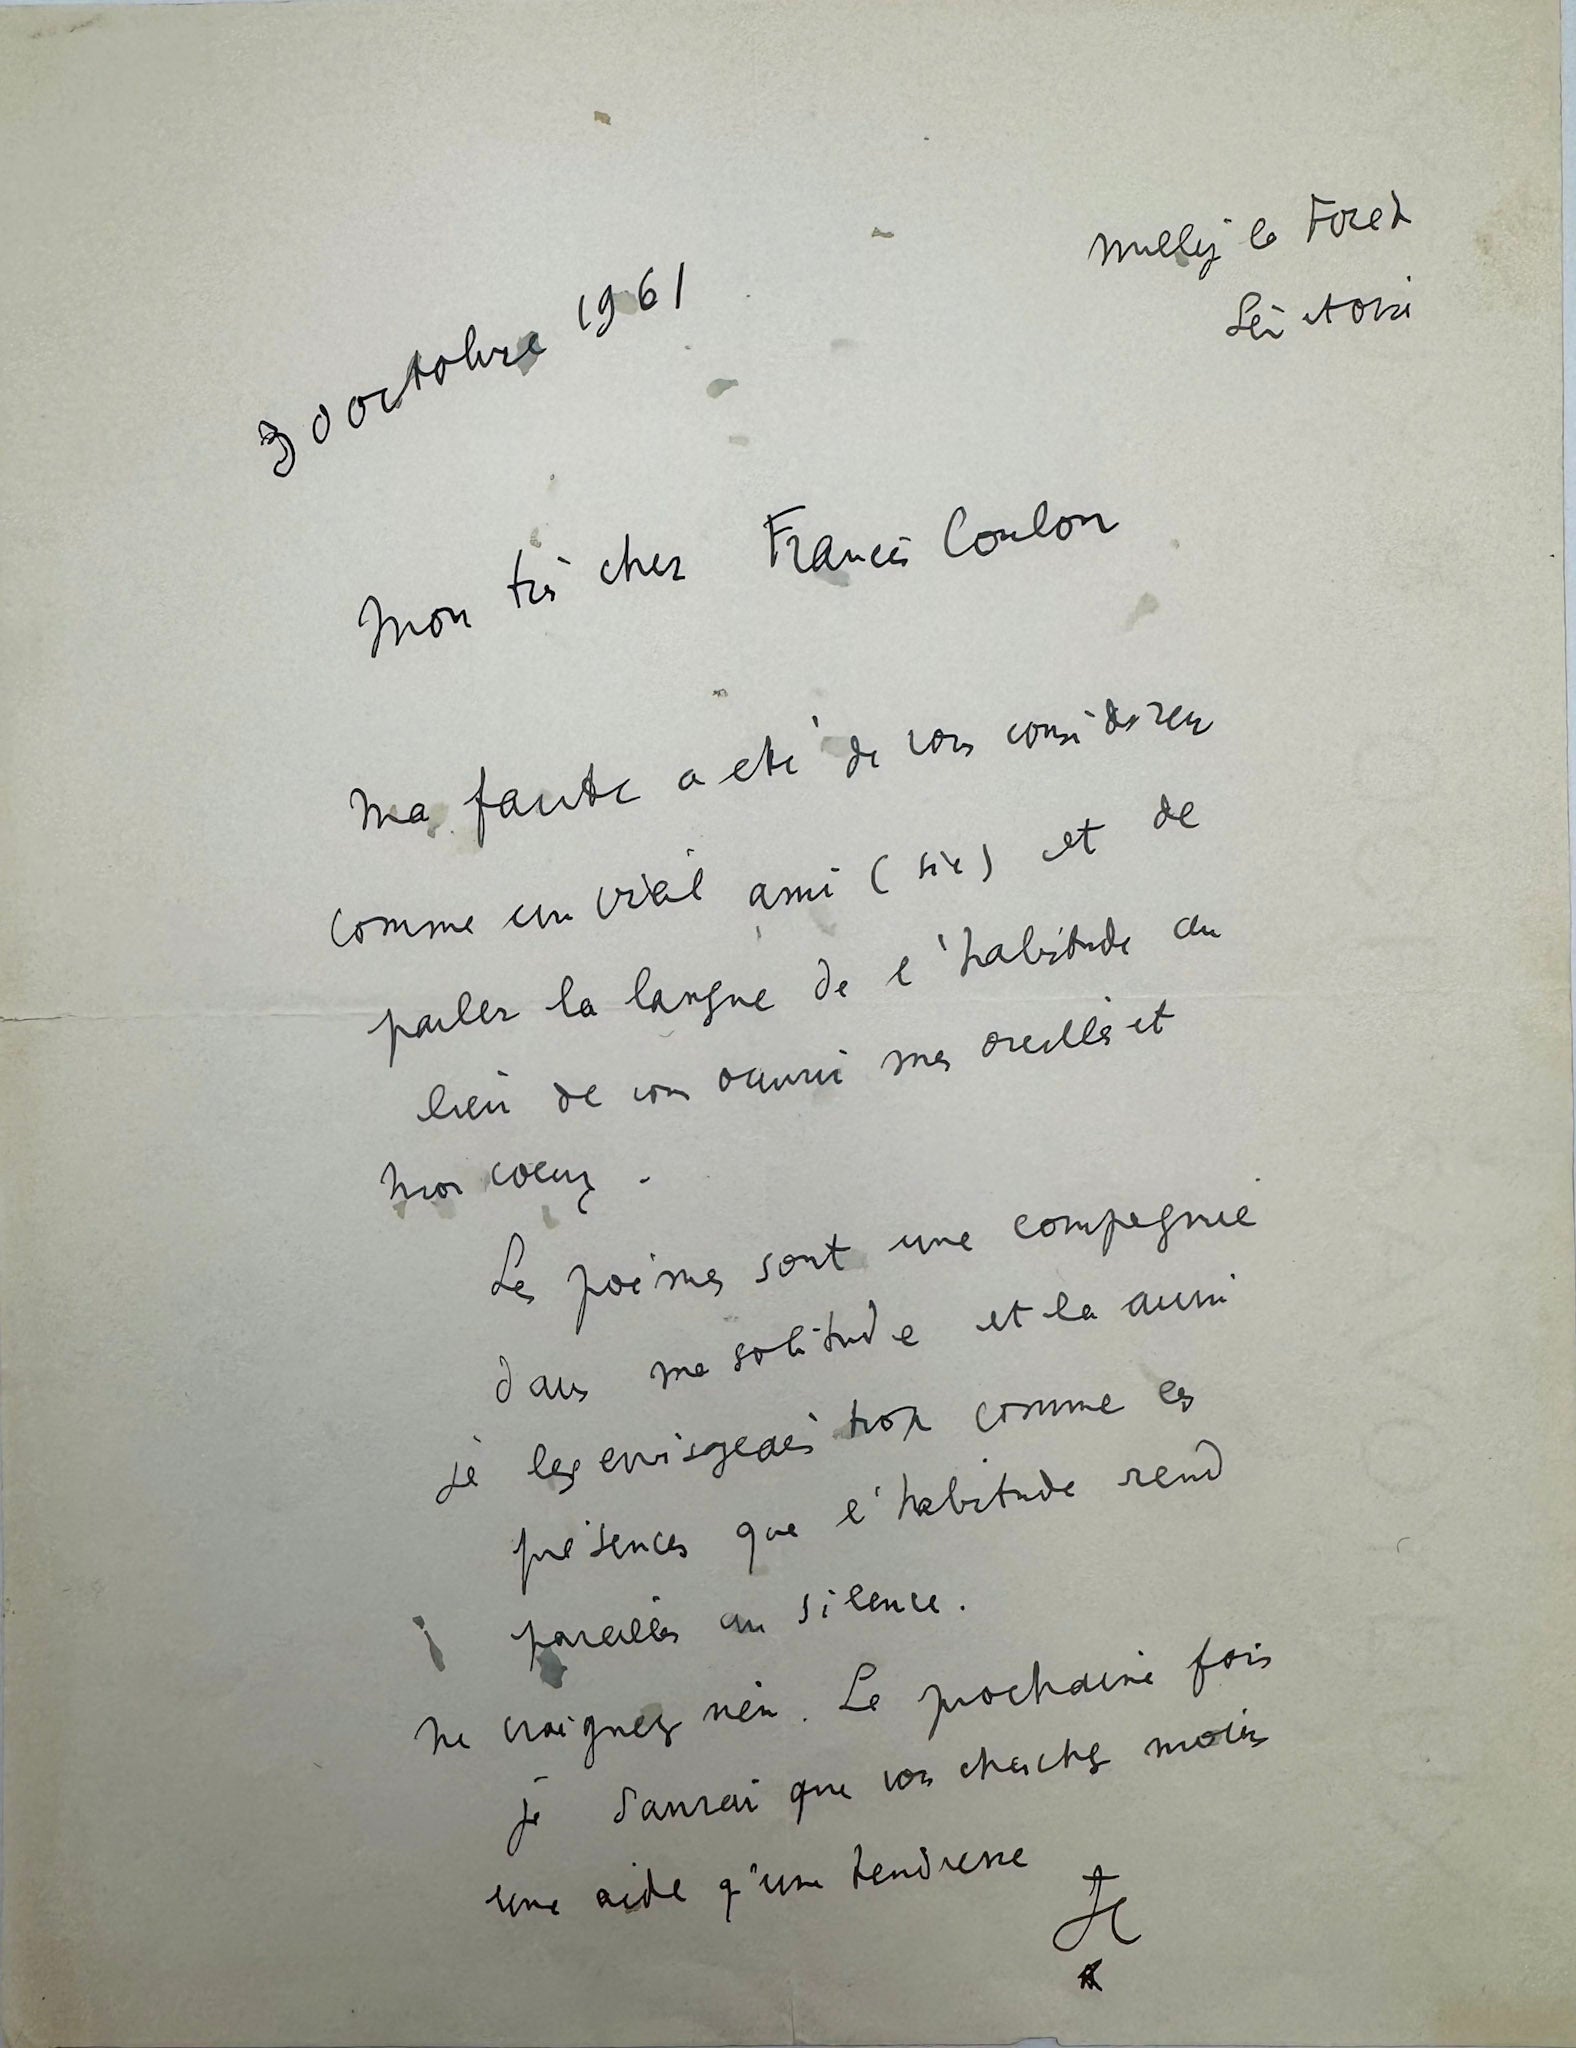 Milly la Foret
Seine et Oise
30 octobre 1961
Mon très cher Francis Coulon
Ma faute a été de vous considérer
comme un vieil ami (sic) et de
parler la langue de l'habitude au
lieu de vous ouvrir mes oreilles et
mon coeur.
Les poèmes sont une compagnie
dans ma solitude et là aussi
je les envisageais trop comme ces
présences que l'habitude rend
pareilles au silence.
Ne craignez rien. La prochaine fois
je saurai que vous cherchez moins
une aide qu'une tendresse
JC